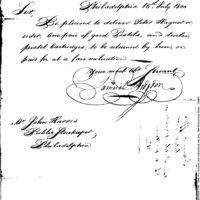 Philadelphia 15th July 1800
Sir,
Be pleased to deliver Peter Hagner or
order, One pair of good Pistols, and twelve
pistol Cartridges, to be returned by him, or
paid for at a fair valuation.
Your most obt Servant
Samuel
Mr John Harris
Public Storekeeper
Philadelphia